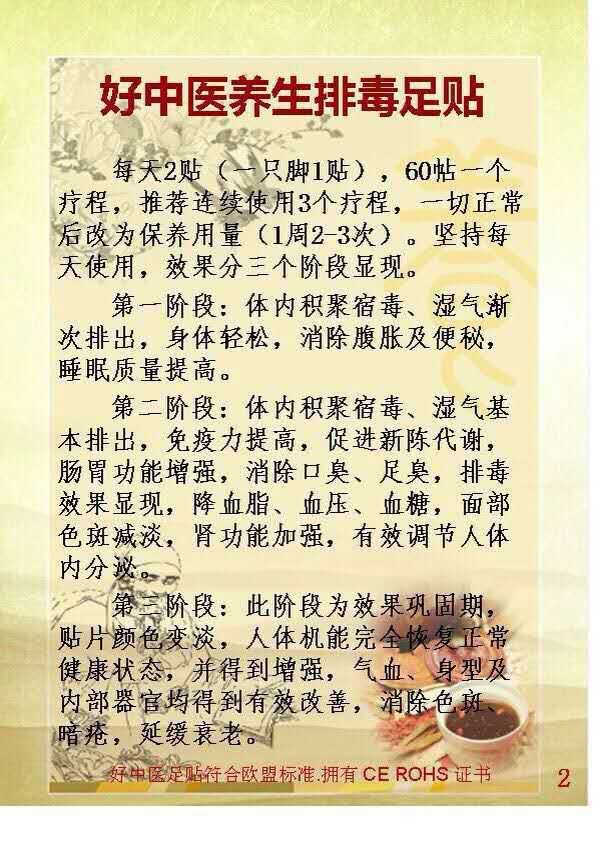 好中医养生排毒足贴
每天2贴（一只脚1贴），60帖一个
疗程，推荐连续使用3个疗程，一切正常
后改为保养用量（1周2-3次）。坚持每
天使用，效果分三个阶段显现。
第一阶段：体内积聚宿毒、湿气渐
次排出，身体轻松，消除腹胀及便秘，
睡眠质量提高。
第二阶段：体内积聚宿毒、湿气基
本排出，免疫力提高，促进新陈代谢，
肠胃功能增强，消除口臭、足臭，排毒
效果显现，降血脂、血压、血糖，面部
色斑减淡，肾功能加强，有效调节人体
内分泌。
第三阶段：此阶段为效果巩固期，
贴片颜色变淡，人体机能完全恢复正常
健康状态，并得到增强，气血、身型及
内部器官均得到有效改善，消除色斑、
暗疮，延缓衰老。
好中医足贴符合欧盟标准.拥有 CE ROHS 证书
2